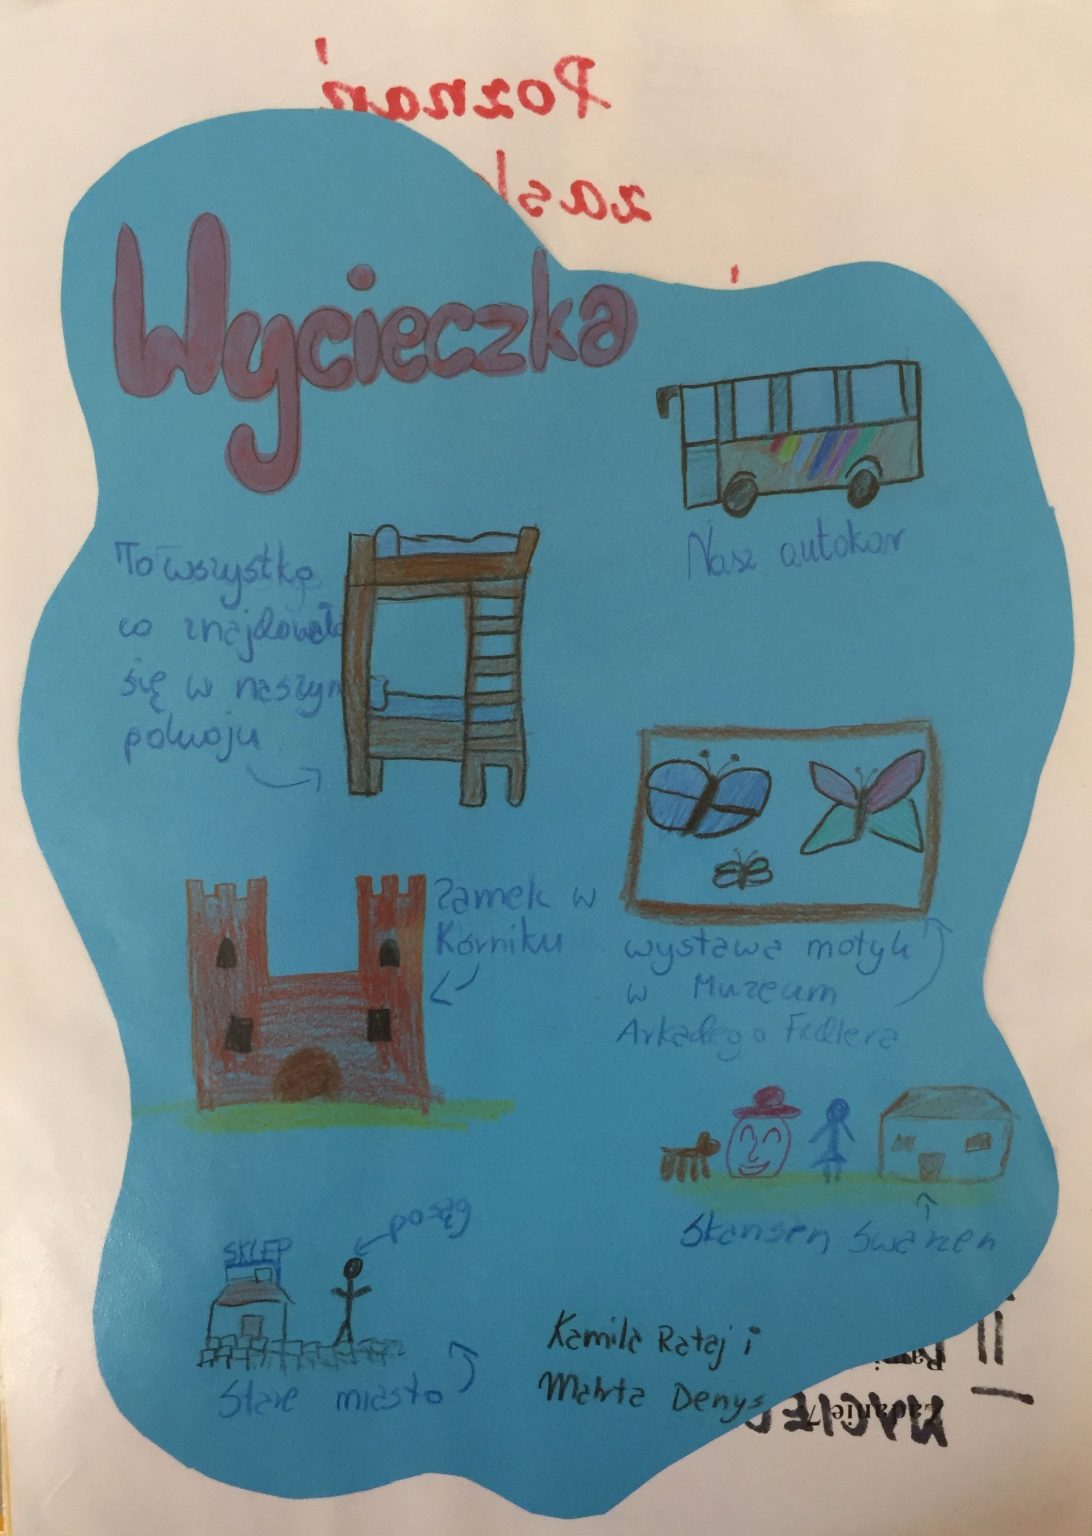 Poznań
Wycieczka
Nasz autokar
To wszystko
co znajdowało
się w naszym
pokoju
Zamek w
Kórniku
wystawa motyli
w Muzeum
Arkadego Fidlera
Skansen Swarzen
posąg
SKLEP
Stare miasto
Kamila Rataj i
Marta Denys
II